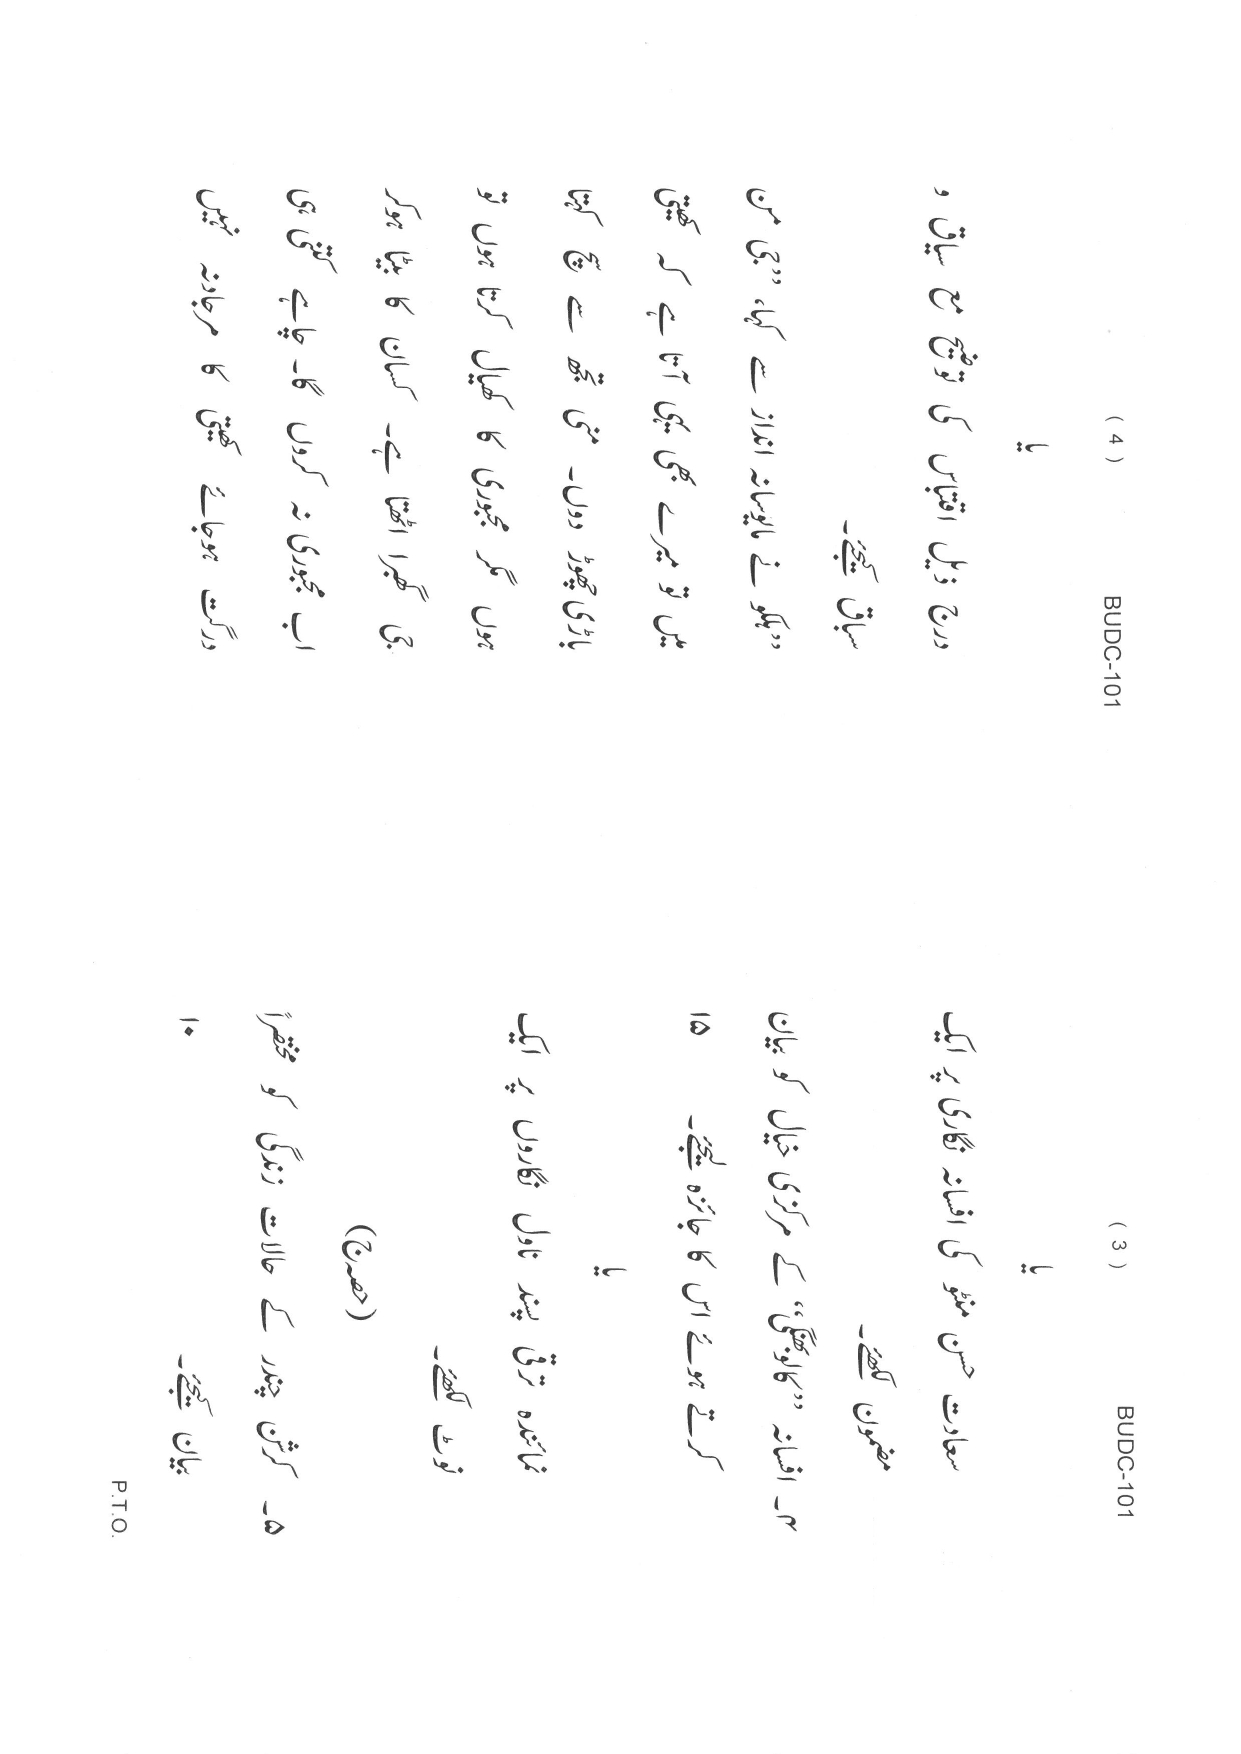 ( 3 ) BUDC-101
یا
سعادت حسن منٹو کی افسانہ نگاری پر ایک
مضمون لکھئے۔
۴۔ افسانہ ”کالو بھنگی“ کے مرکزی خیال کو بیان
کرتے ہوئے اس کا جائزہ لیجئے۔ ۱۵
یا
نمائندہ ترقی پسند ناول نگاروں پر ایک
نوٹ لکھئے۔
(حصہ ج)
۵۔ کرشن چندر کے حالات زندگی کو مختصراً
بیان کیجئے۔ ۱۰
P.T.O.
( 4 ) BUDC-101
یا
درج ذیل اقتباس کی توضیح مع سیاق و
سباق کیجئے۔
”ہلکو نے مایوسانہ انداز سے کہا، ”جی من
میں تو میرے بھی یہی آتا ہے کہ کھیتی
باڑی چھوڑ دوں۔ منی تجھ سے سچ کہتا
ہوں مگر مجبوری کا کھیال کرتا ہوں تو
جی گھبرا اٹھتا ہے۔ کسان کا بیٹا ہوکر
اب مجبوری نہ کروں گا۔ چاہے کتنی ہی
درگت ہوجائے کھیتی کا مرجادنہ نہیں